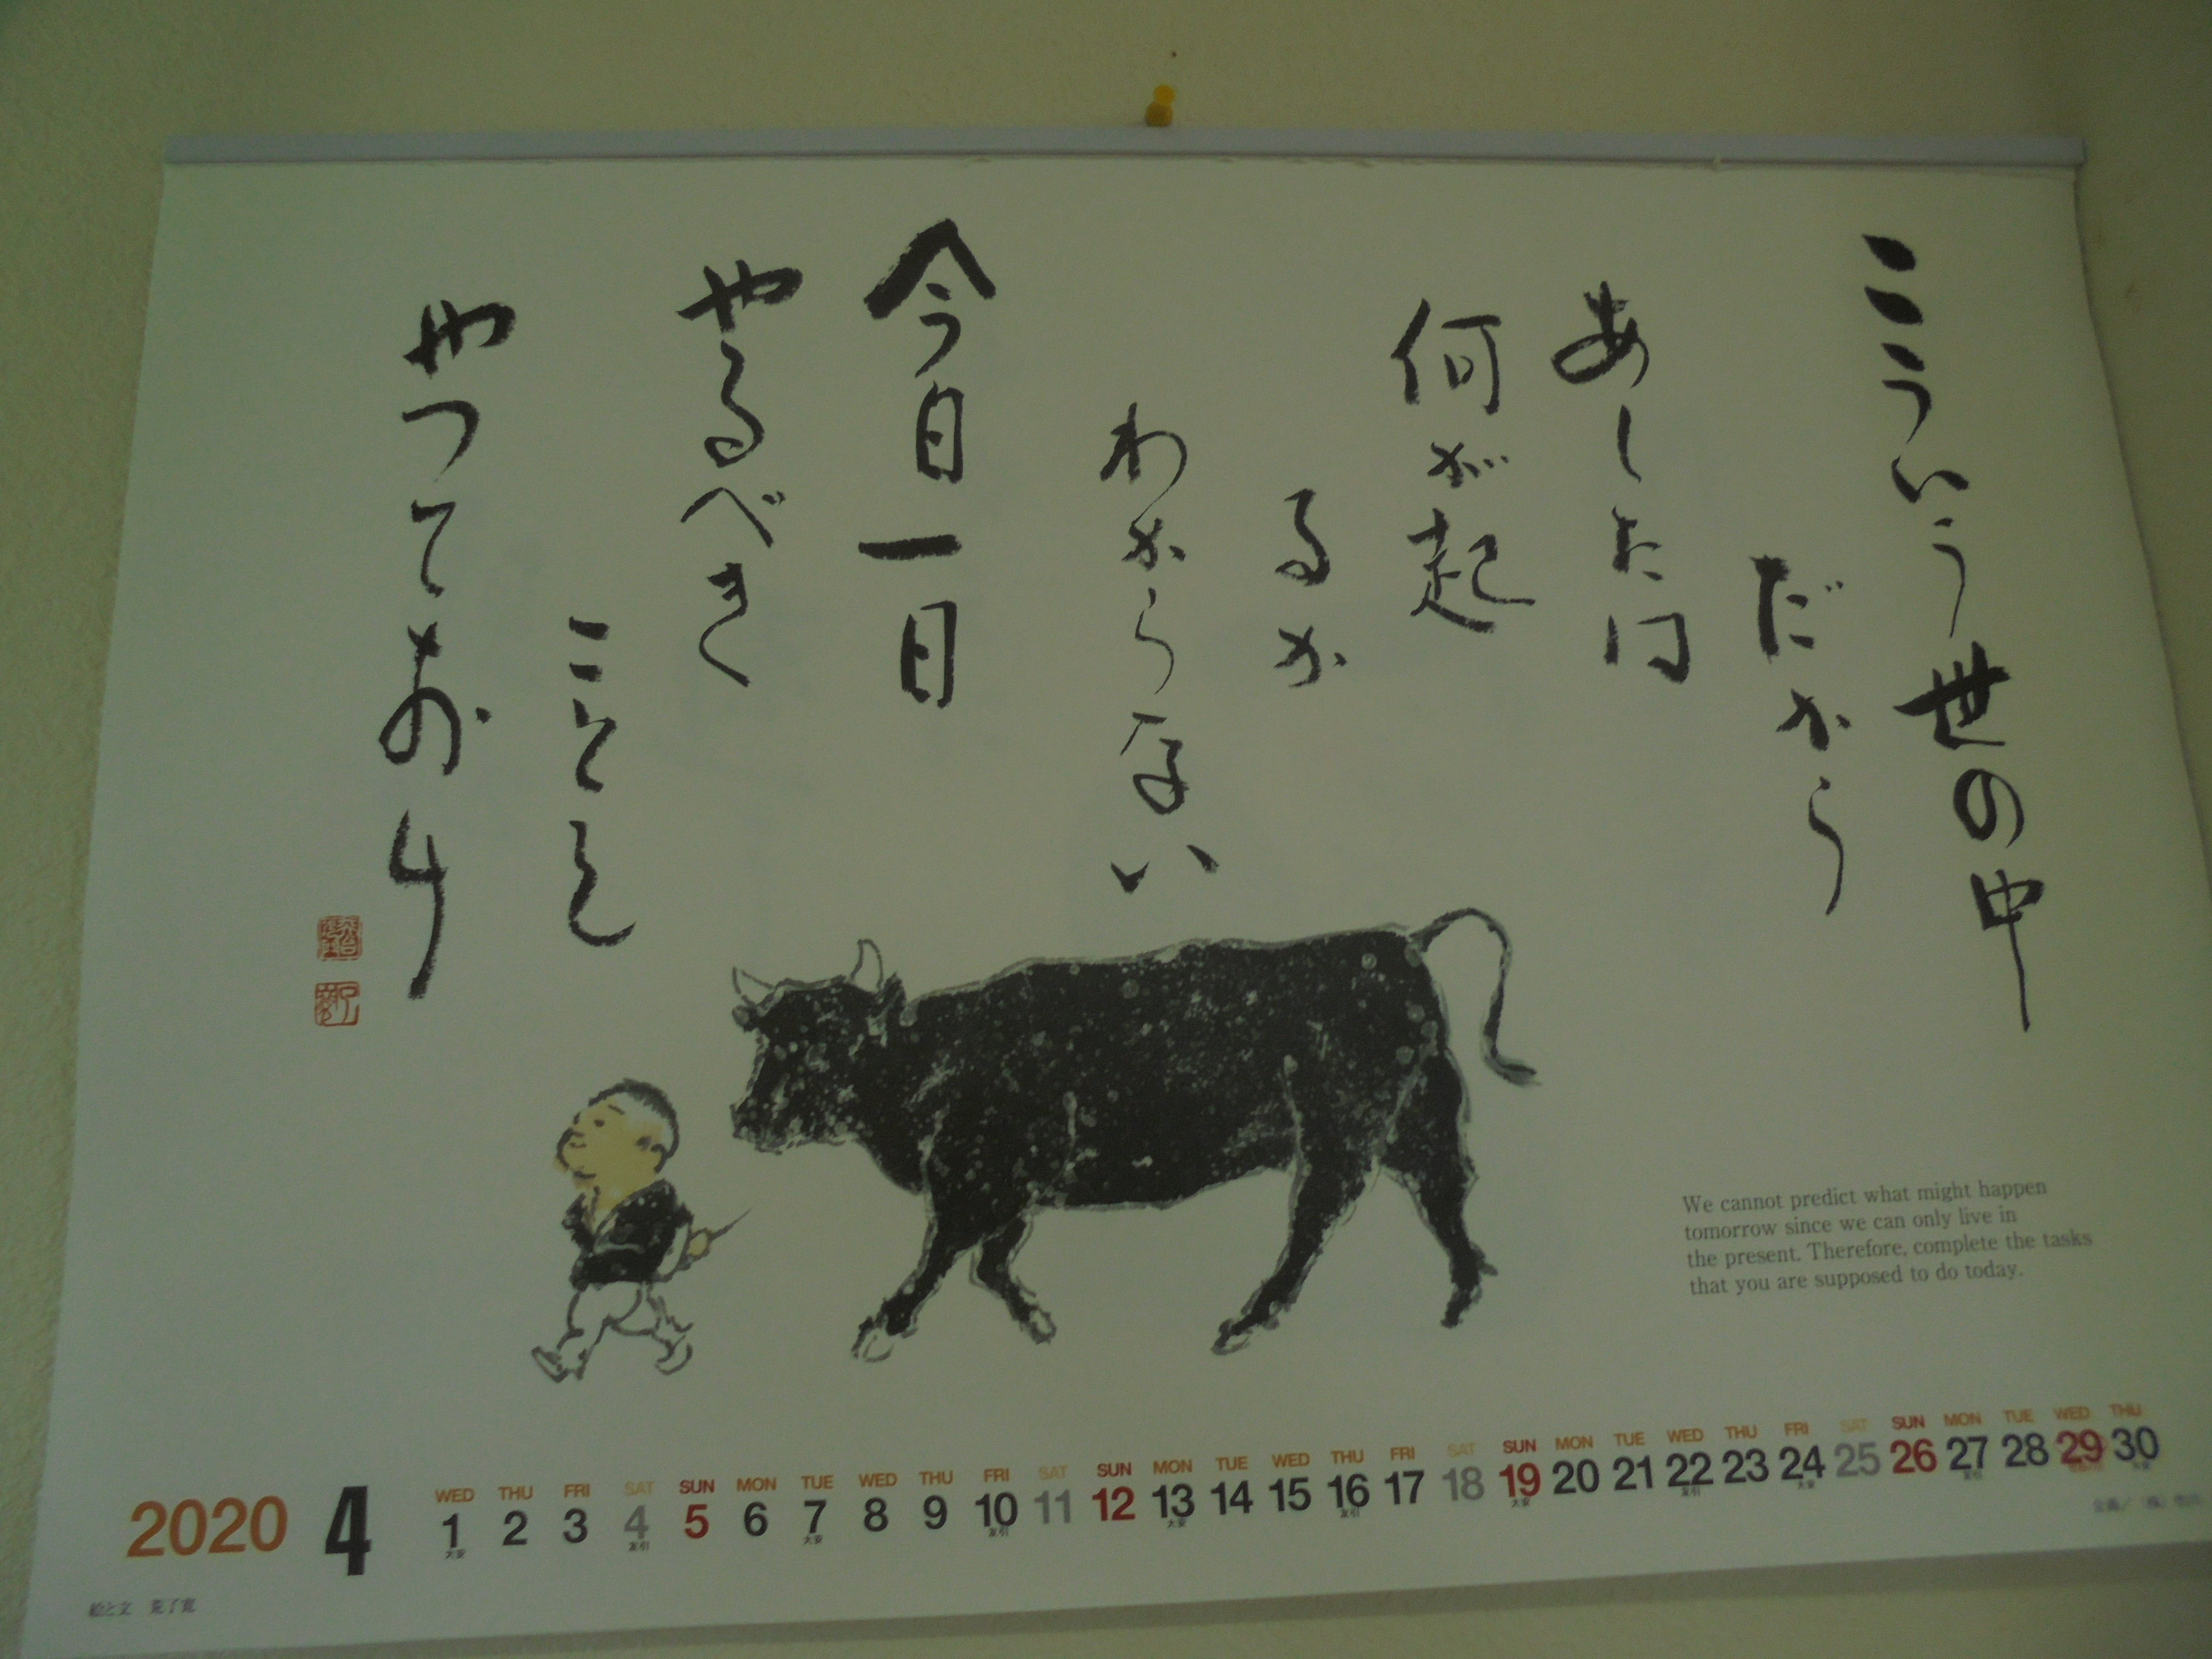 こういう世の中
だから
あした
何が起
るか
わからない
今日一日
やるべき
ことを
やっておけ
We cannot predict what might happen
tomorrow since we can only live in
the present. Therefore, complete the tasks
that you are supposed to do today.
WED THU FRI SAT SUN MON TUE WED THU FRI SAT SUN MON TUE WED THU FRI SAT SUN MON TUE WED THU FRI SAT SUN MON TUE WED THU
2020 4 1 2 3 4 5 6 7 8 9 10 11 12 13 14 15 16 17 18 19 20 21 22 23 24 25 26 27 28 29 30
大安 友引 大安 友引 大安 友引 大安 友引 大安 友引 大安
絵と文 荒了寛